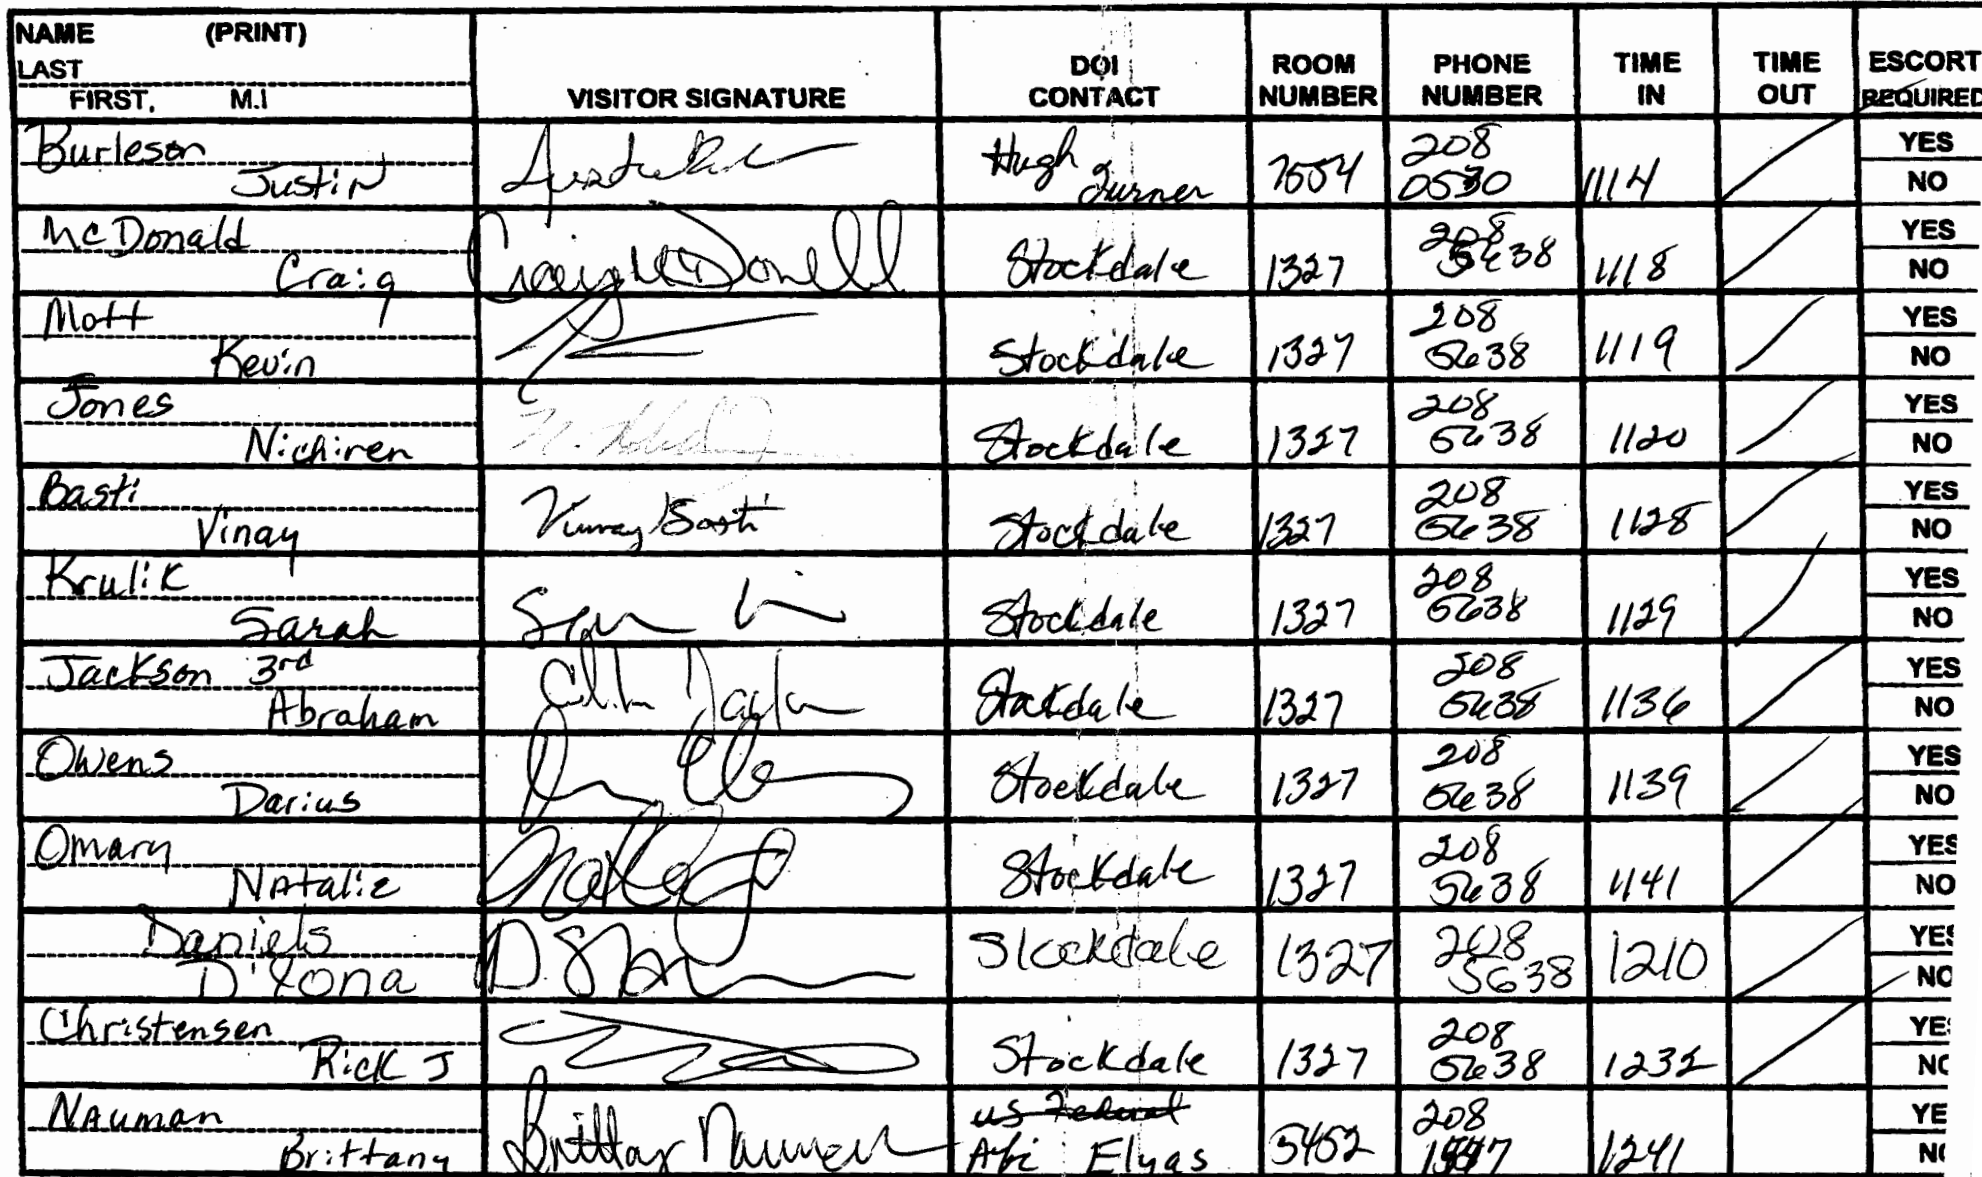 NAME (PRINT)
LAST
FIRST, M.I
VISITOR SIGNATURE
DOI
CONTACT
ROOM
NUMBER
PHONE
NUMBER
TIME
IN
TIME
OUT
ESCORT
REQUIRED
Burleson
Justin
Hugh
Turner
7554
208
0530
1114
YES
NO
McDonald
Craig
Craig McDonald
Stockdale
1327
208
5638
1118
YES
NO
Mott
Kevin
Stockdale
1327
208
5638
1119
YES
NO
Jones
Nichiren
Stockdale
1327
208
5638
1120
YES
NO
Basti
Vinay
Vinay Basti
Stockdale
1327
208
5638
1128
YES
NO
Krulik
Sarah
Stockdale
1327
208
5638
1129
YES
NO
Jackson 3rd
Abraham
Stockdale
1327
208
5638
1136
YES
NO
Owens
Darius
Stockdale
1327
208
5638
1139
YES
NO
Omary
Natalie
Stockdale
1327
208
5638
1141
YES
NO
Daniels
D'Yona
Stockdale
1327
208
5638
1210
YES
NO
Christensen
Rick J
Stockdale
1327
208
5638
1232
YES
NO
Nauman
Brittany
Brittany Nauman
us Federal
Abi Elyas
5452
208
1241
YE
NO